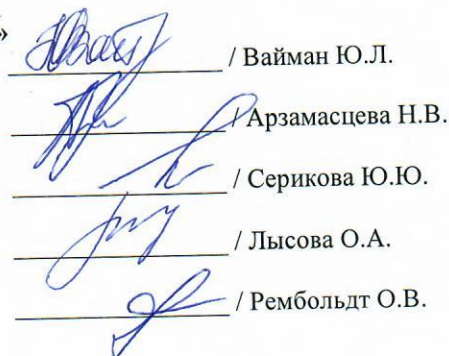 »
/ Вайман Ю.Л.
/ Арзамасцева Н.В.
/ Серикова Ю.Ю.
/ Лысова О.А.
/ Рембольдт О.В.